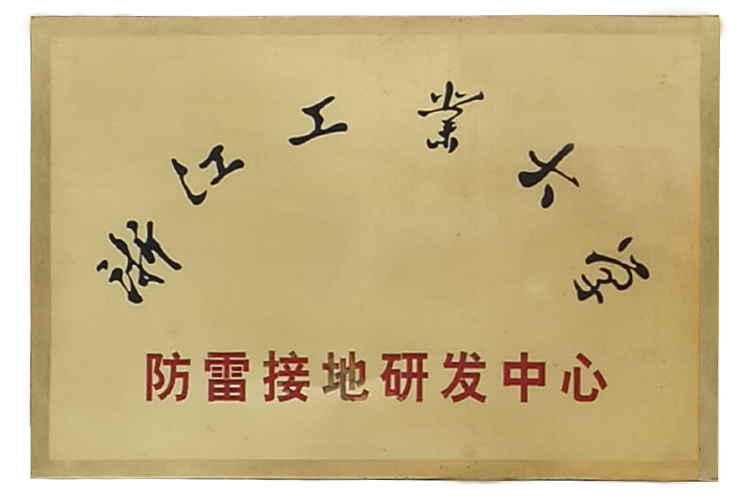 浙江工業大学
防雷接地研发中心